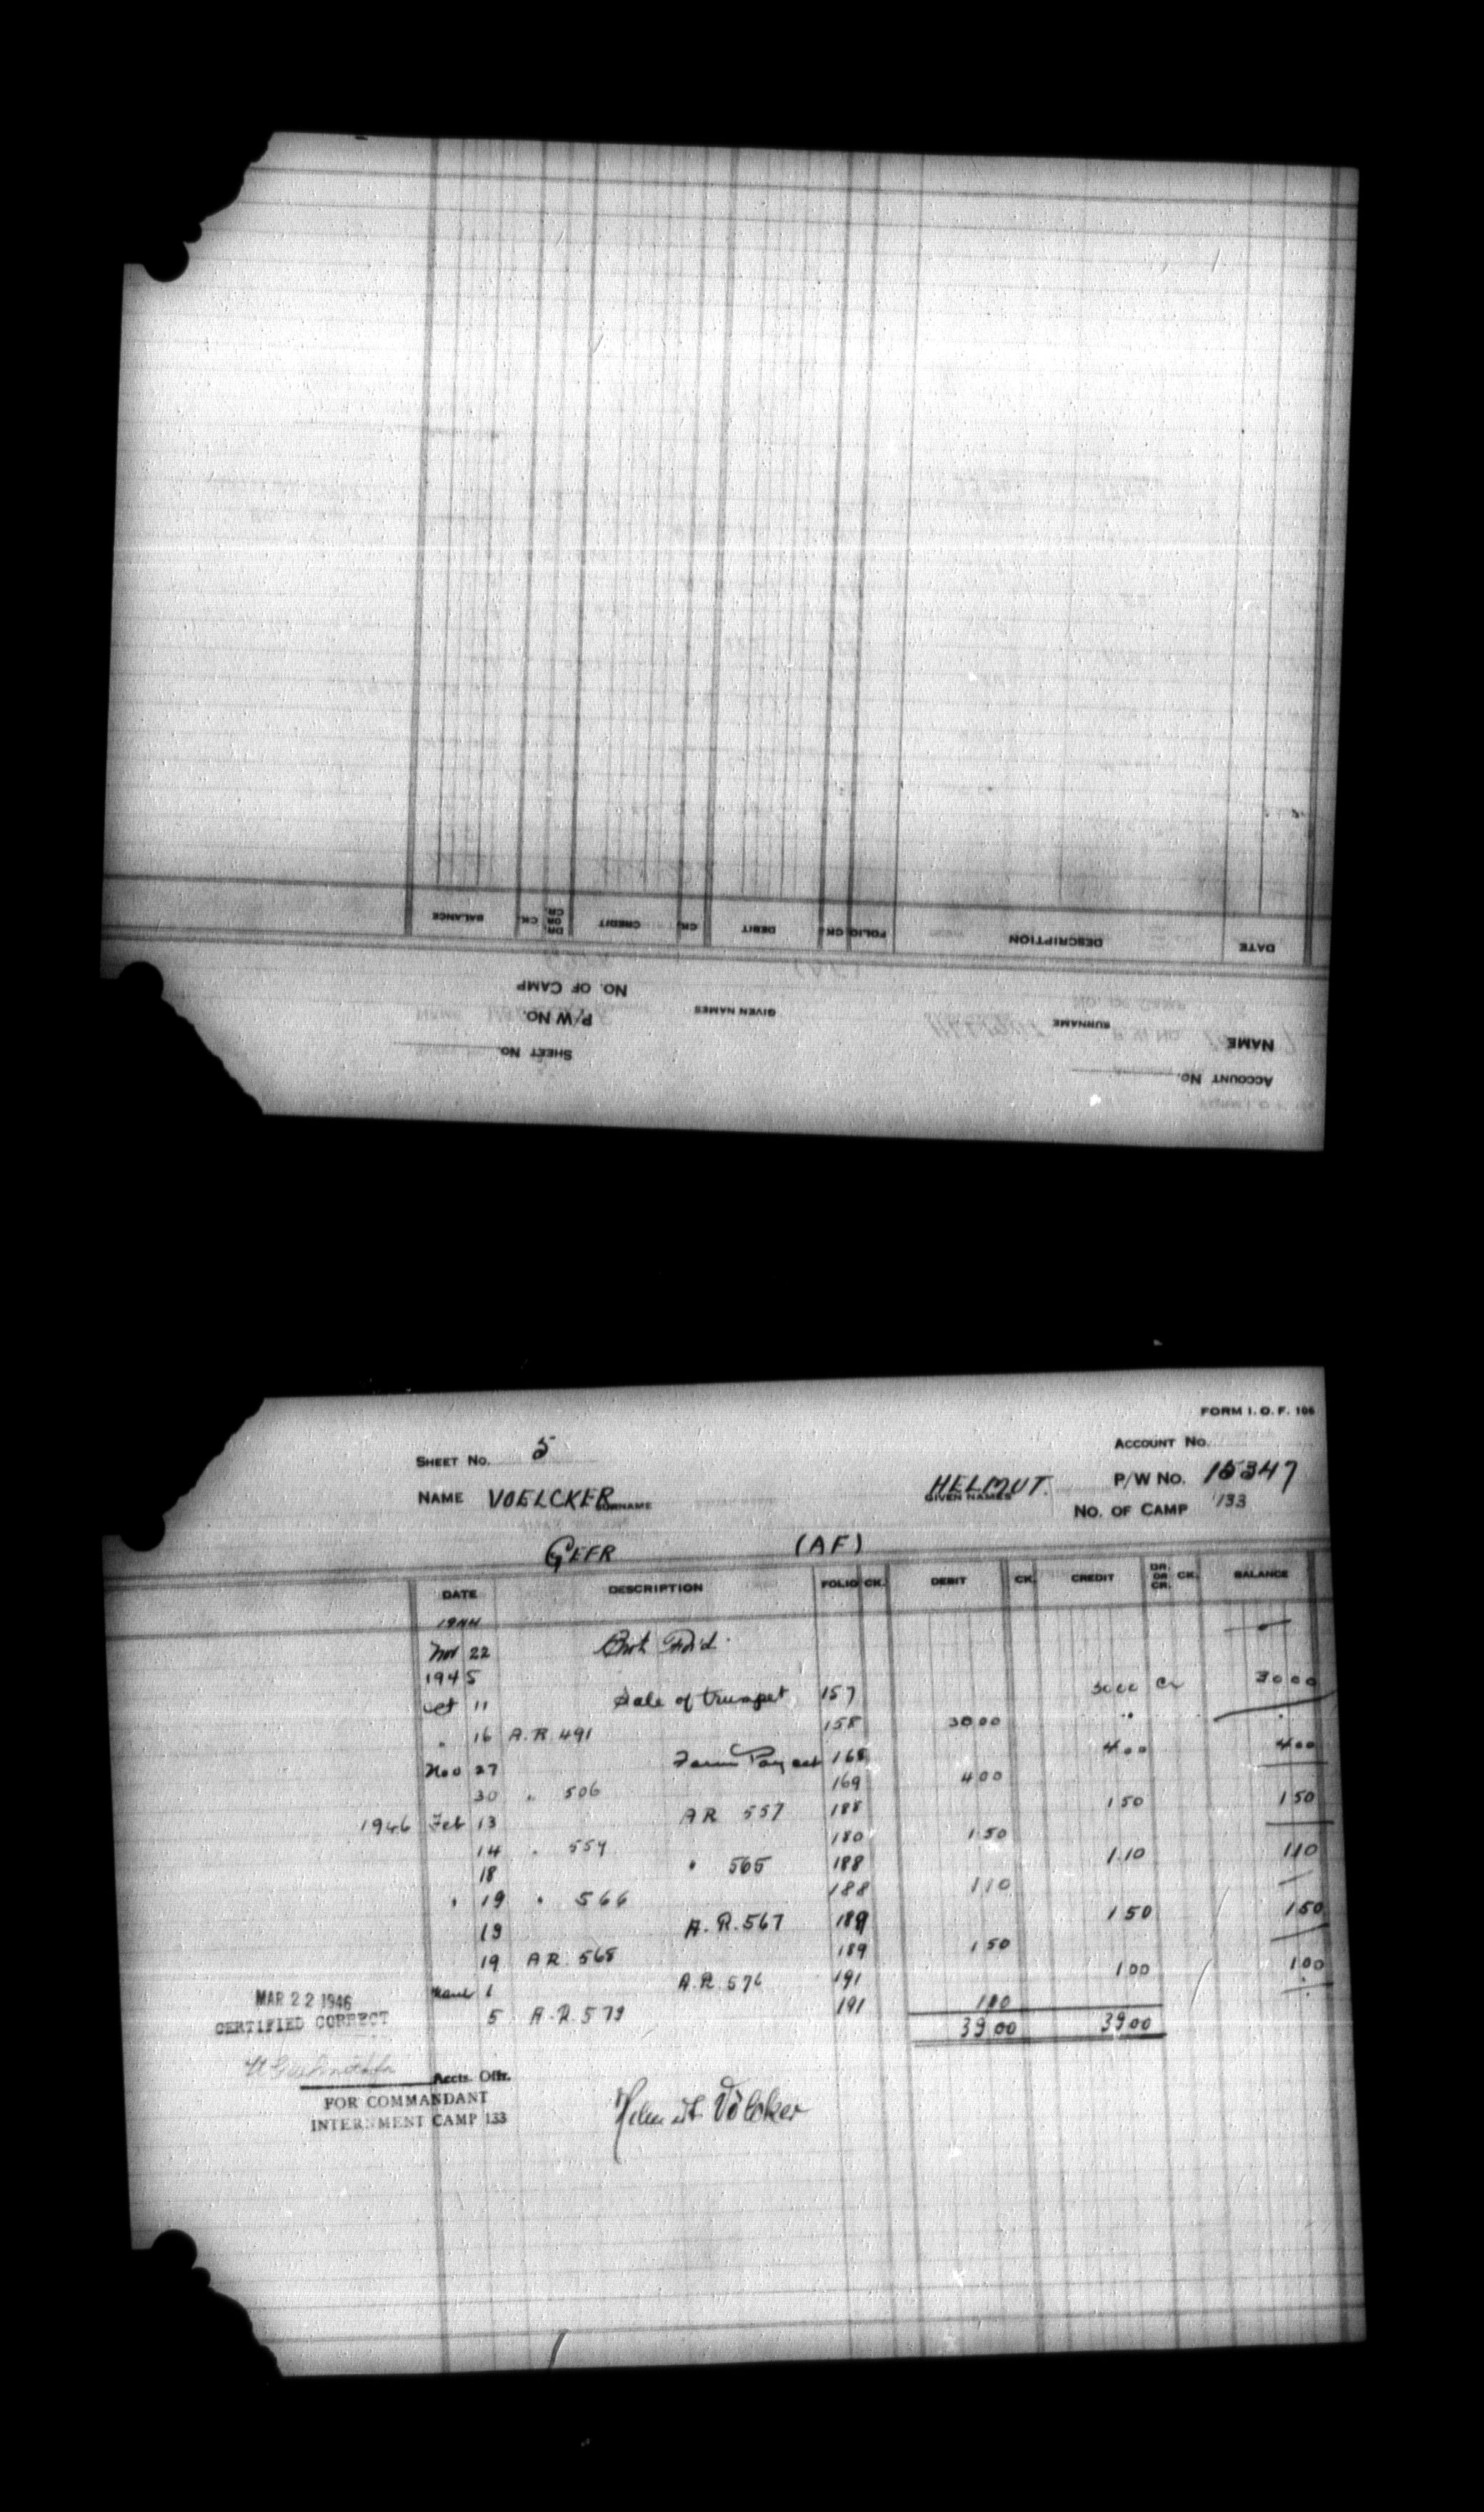 ACCOUNT NO.
SHEET NO.
NAME SURNAME GIVEN NAMES P/W NO.
NO. OF CAMP
DATE DESCRIPTION FOLIO CK. DEBIT CK. CREDIT DR. OR CR. CK. BALANCE
FORM I. O. F. 106
SHEET NO. 5 ACCOUNT NO.
NAME VOELCKER SURNAME HELMUT. GIVEN NAMES P/W NO. 15347
NO. OF CAMP 133
GEFR (AF)
DATE DESCRIPTION FOLIO CK. DEBIT CK. CREDIT DR. OR CR. CK. BALANCE
1944
Nov 22 Brot For'd. —
1945
Oct 11 Sale of trumpet 157 3000 Cr 3000
" 16 A.R. 491 158 3000
Nov 27 Farm 168 400 400
30 " 506 169 400
1946 Feb 13 AR 557 188 150 150
14 " 559 180 150
18 " 565 188 110 110
" 19 " 566 188 110
19 A.R. 567 189 150 150
19 AR 568 189 150
1 A.R. 576 191 100 100
5 A.R. 579 191 100
39 00 39 00
MAR 22 1946
CERTIFIED CORRECT
Accts. Offr.
FOR COMMANDANT
INTERNMENT CAMP 133
Helmut Völcker